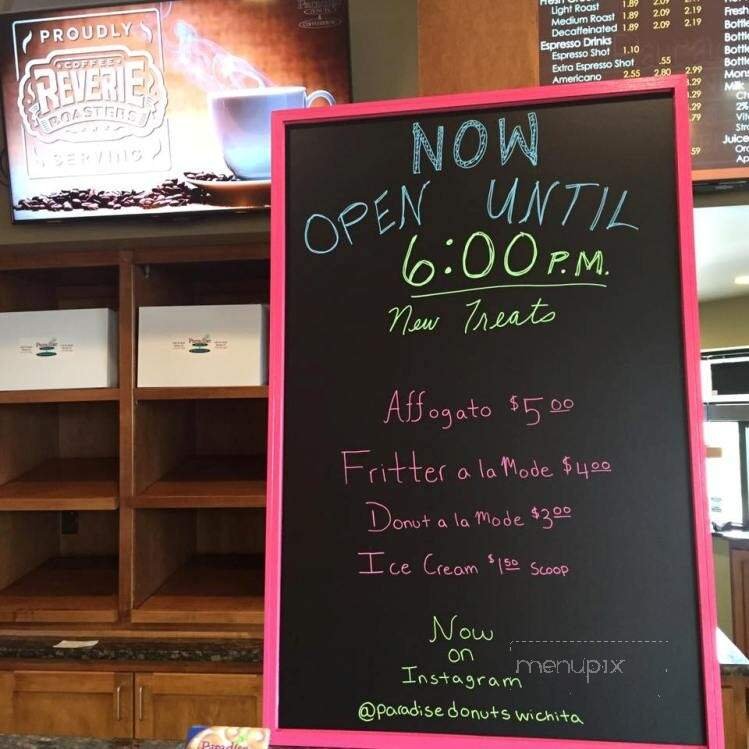 PROUDLY
COFFEE
REVERIE
ROASTERS
SERVING
Light Roast 1.89 2.09 2.19
Medium Roast 1.89 2.09 2.19
Decaffeinated 1.89 2.09 2.19
Espresso Drinks
Espresso Shot 1.10
Extra Espresso Shot .55
Americano 2.55 2.80 2.99
Milk
2%
Juice
NOW
OPEN UNTIL
6:00 P.M.
New Treats
Affogato $5.00
Fritter a la Mode $4.00
Donut a la Mode $3.00
Ice Cream $1.50 Scoop
Now
on
Instagram
@paradisedonutswichita
menupix
Paradise
Paradise
Paradise